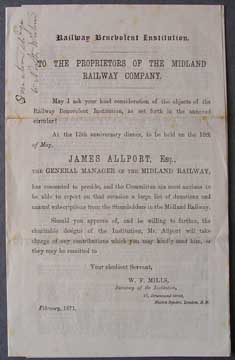 Railway Benevolent Institution.
TO THE PROPRIETORS OF THE MIDLAND
RAILWAY COMPANY.
May I ask your kind consideration of the objects of the
Railway Benevolent Institution, as set forth in the annexed
circular?
At the 13th anniversary dinner, to be held on the
of May,
JAMES ALLPORT, Esq.,
THE GENERAL MANAGER OF THE MIDLAND RAILWAY,
has consented to preside, and the Committee are most anxious to
be able to report on that occasion a large list of donations and
annual subscriptions from the Shareholders in the Midland Railway.
Should you approve of, and be willing to further, the
charitable designs of the Institution, Mr. Allport will take
charge of any contributions which you may kindly send him, or
they may be remitted to
Your obedient Servant,
W. F. MILLS,
Secretary of the Institution,
Drummond Street,
Euston Square, London, N.W.
February, 1871.